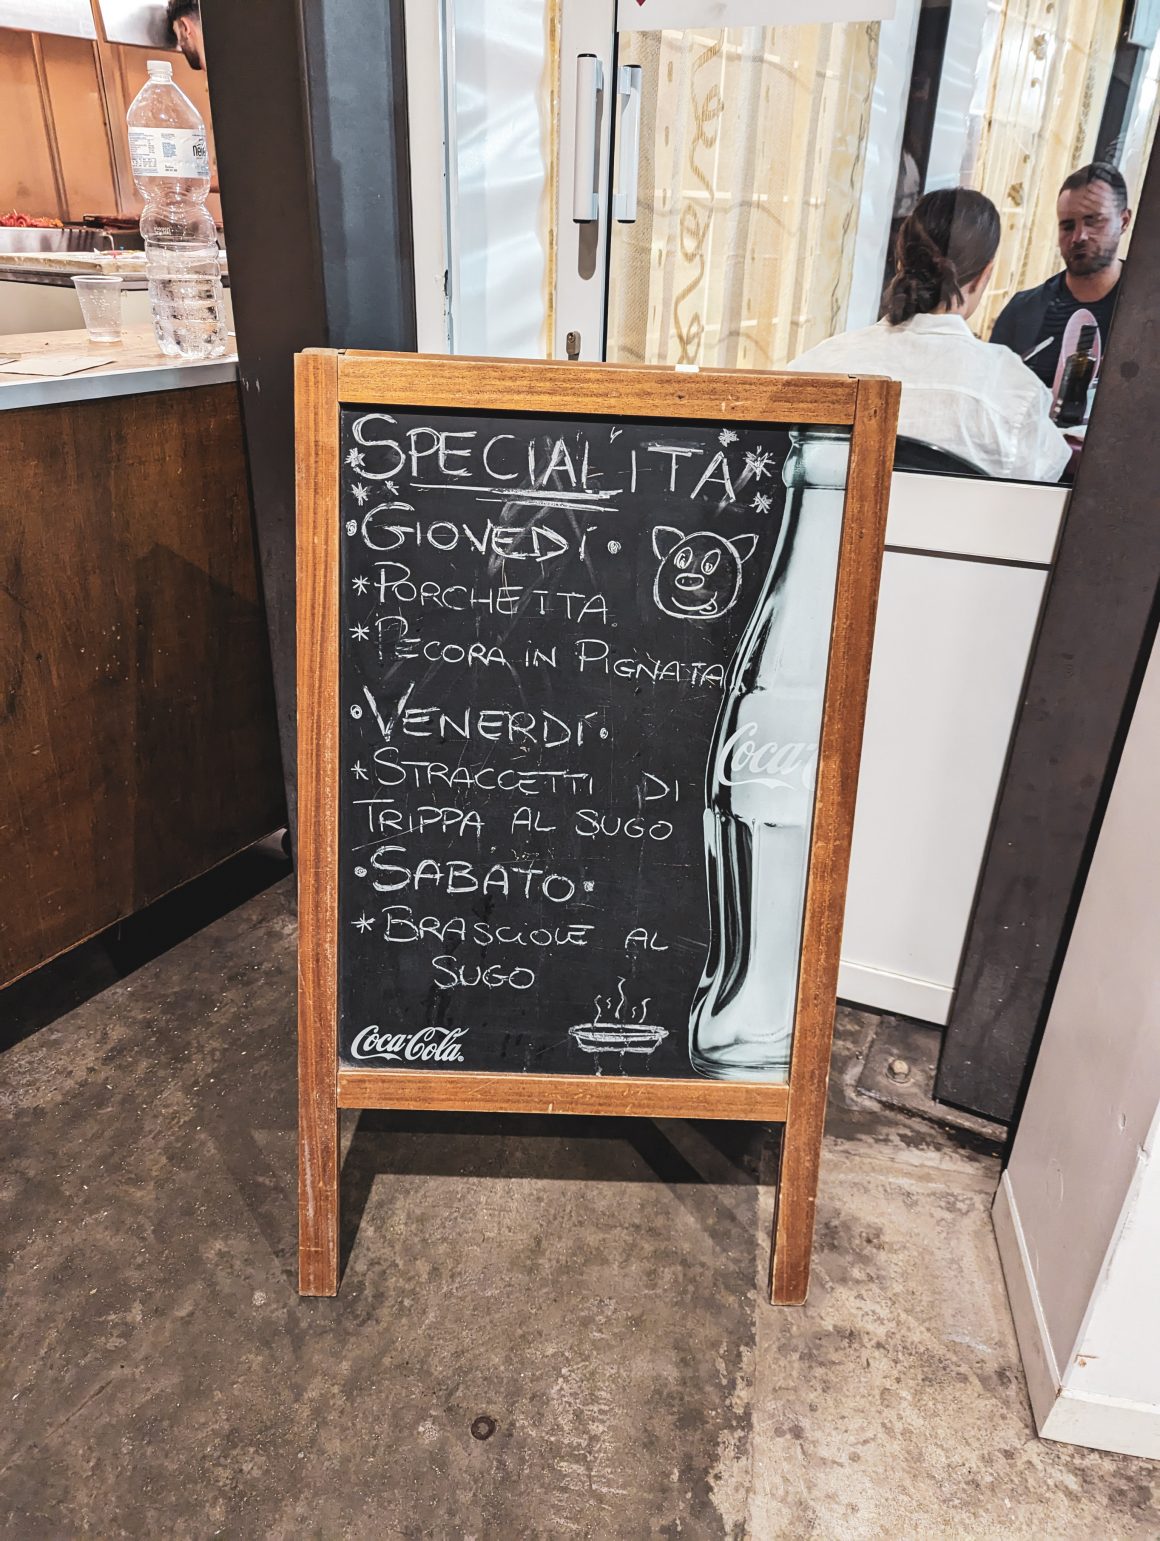 SPECIALITÁ
GIOVEDÍ
* PORCHETTA
* PECORA IN PIGNATA
VENERDÍ
* STRACCETTI DI
TRIPPA AL SUGO
SABATO
* BRASCIOLE AL
SUGO
Coca-Cola
Coca